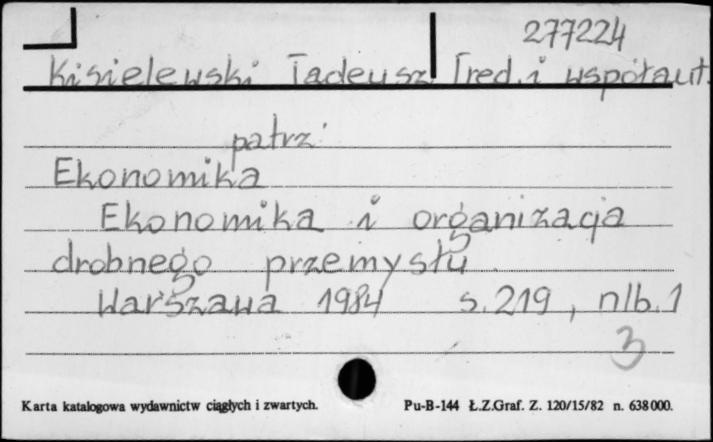 277224
Kisielewski Tadeusz [red. i współaut.
patrz:
Ekonomika
Ekonomika i organizacja
drobnego przemysłu.
Warszawa 1984 s. 219, nlb. 1
3
Karta katalogowa wydawnictw ciągłych i zwartych. Pu-B-144 Ł.Z.Graf. Z. 120/15/82 n. 638000.